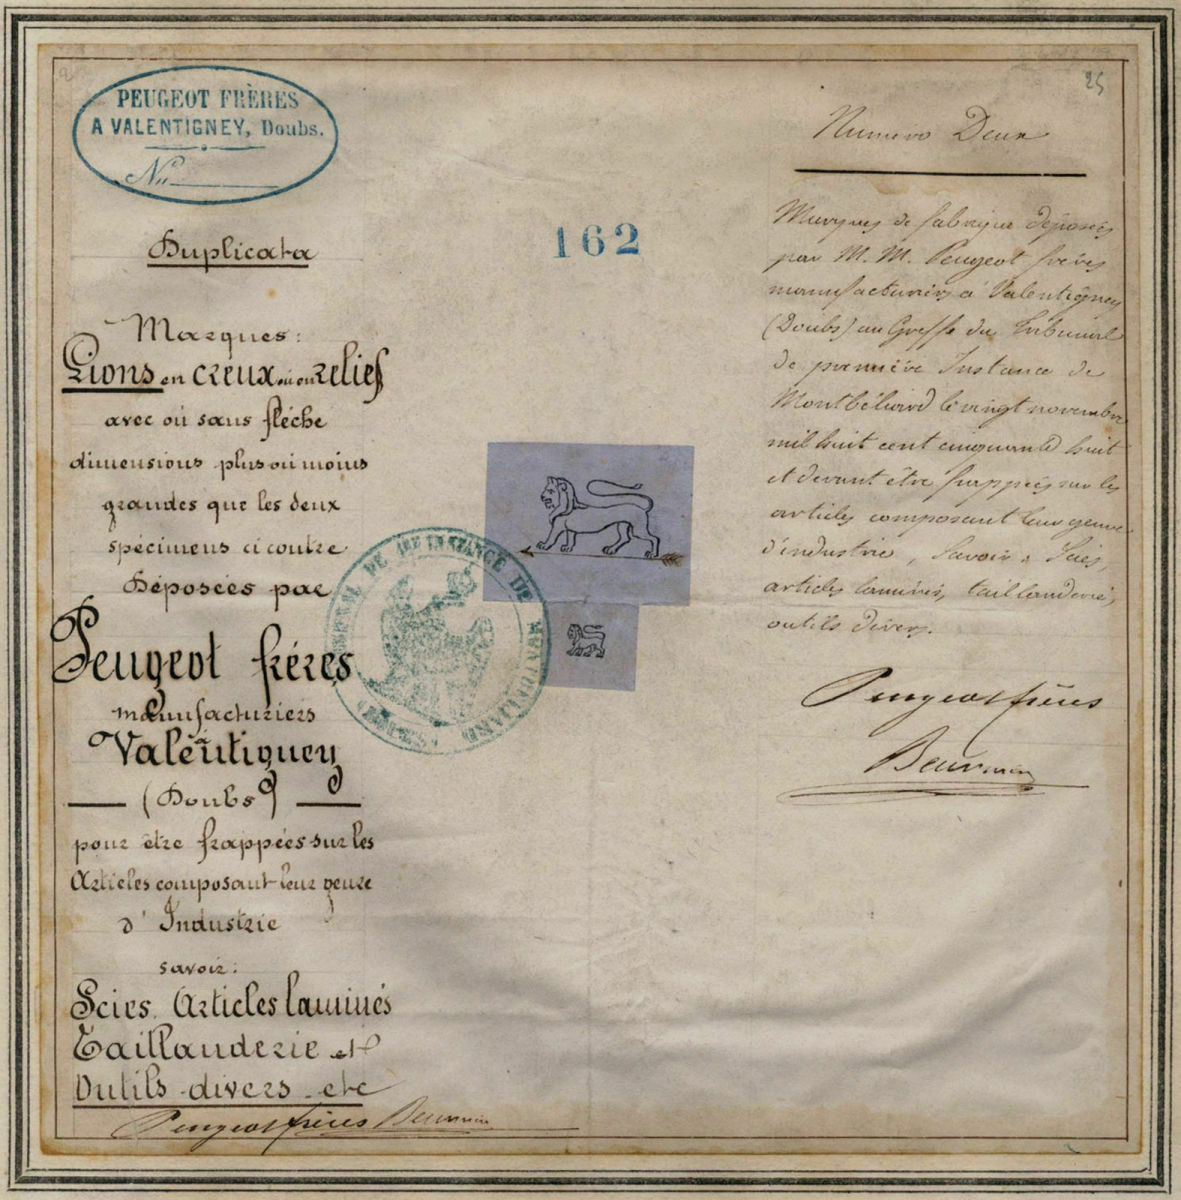 PEUGEOT FRÈRES
A VALENTIGNEY, Doubs.
No
Duplicata
Marques:
Lions en creux ou en relief
avec ou sans flèche
dimensions plus ou moins
grandes que les deux
spécimens ci contre
Déposées par
Peugeot frères
manufacturiers
à
Valentigney
(Doubs)
pour être frappées sur les
Articles composant leur genre
d'Industrie
savoir:
Scies. Articles laminés
Taillanderie et
Outils divers etc
Peugeot frères Beurnier
162
TRIBUNAL DE 1ERE INSTANCE DE MONTBELIARD
25
Numéro Deux
Marques de fabrique déposées
par M. M. Peugeot frères
manufacturiers à Valentigney
(Doubs) au Greffe du Tribunal
de première Instance de
Montbéliard le vingt novembre
mil huit cent cinquante huit
et devant être frappées sur les
articles composant leur genre
d'industrie, Savoir: Scies,
articles laminés, taillanderie,
outils divers.
Peugeot frères
Beurnier